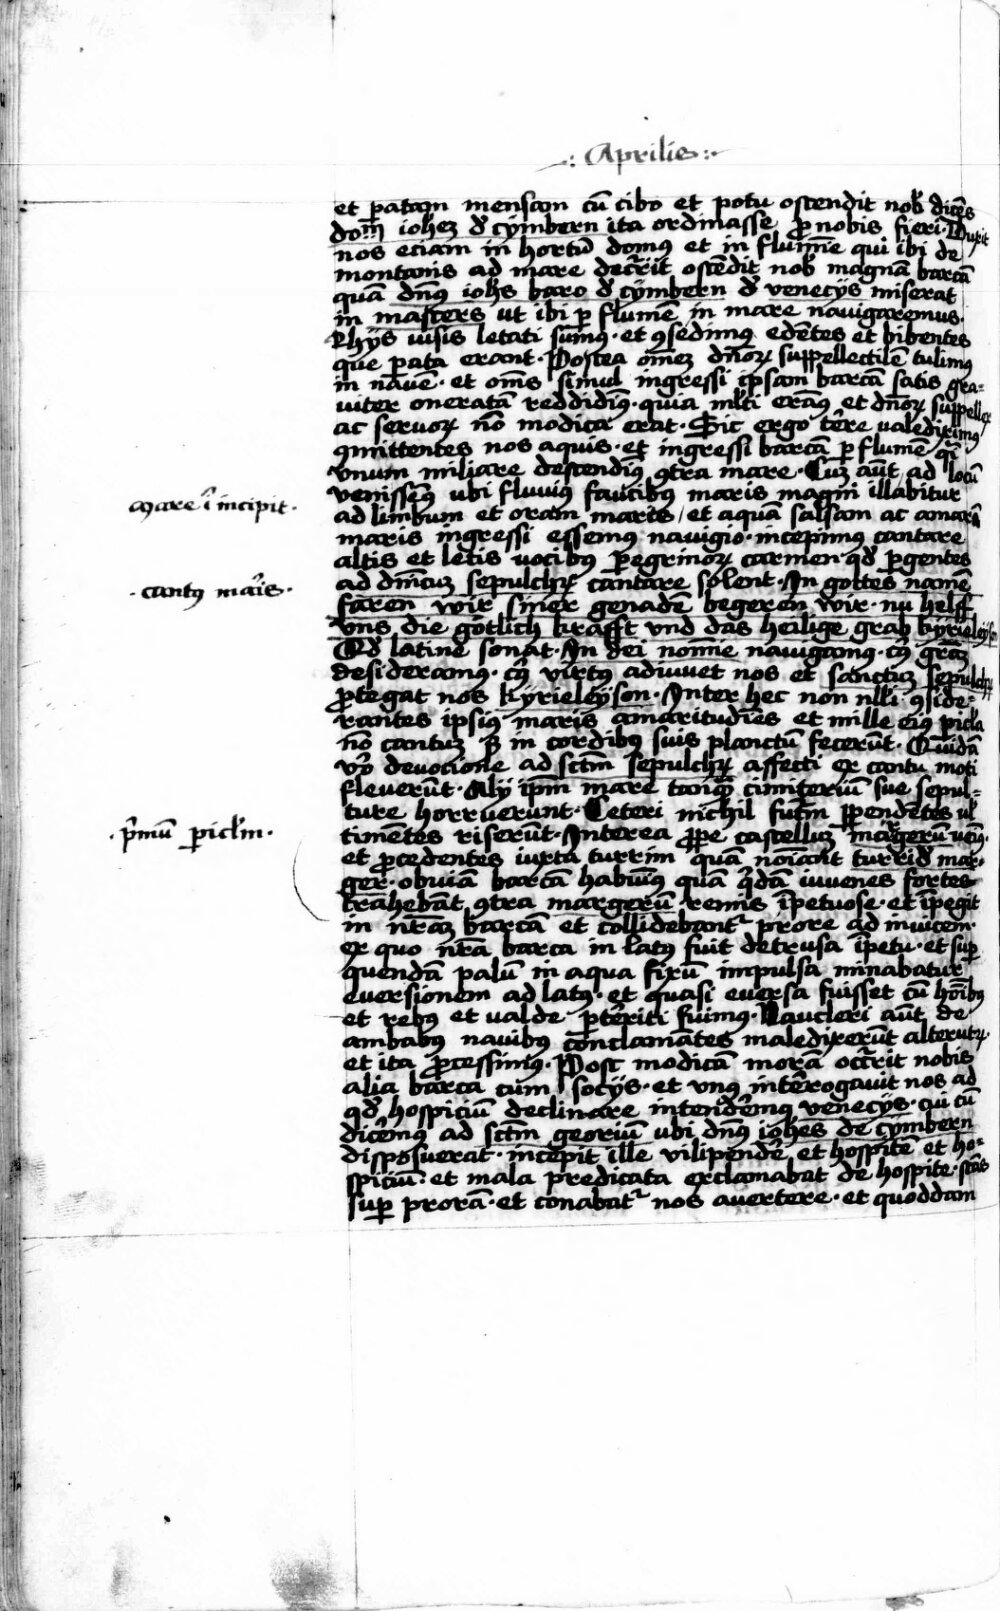 .: Aprilis :.
et ꝑatam mensam cū cibo et potu ostendit nob̄ dicēs
dom̄ ioħeꝫ đ cymbern ita ordinasse ꝓ nobis fieri · Duxit
nos eciam in hortū domꝰ et in flumīe qui ibi de
montanis ad mare decꝰrit ostēdit nob̄ magnā barcā
quā dn̄ꝰ ioħs baro đ cymbern đ venecijs miserat
in masters ut ibi ꝑ flumē in mare nauigaremus ·
Khijs visis letati sumꝰ · et ꝯsedimꝰ edētes et bibentes
que ꝑata erant · Postea om̄eꝫ dn̄oꝝ suppellectilē tulimꝰ
in nauē · et om̄s simul ingressi ipsam barcā satis gra=
uiter oneratā reddidimꝰ · quia ml̄ti eramꝰ et dn̄oꝝ suppellex
ac seruoꝝ nō modica erat · Sic ergo tērre valediximꝰ
ꝯmittentes nos aquis · et ingressi barcā ꝑ flumē qͣi
vnum miliare descendimꝰ ꝯtra mare · Cuꝫ aūt ad locū
venissemꝰ ubi fluuiꝰ faucibꝰ maris magni illabitur
mare ī incipit ·
ad limbum et oram maris / et aquā salsam ac amarā
maris ingressi essemus nauigio · incepimus cantare
altis et letis uocibꝰ ꝑegrinoꝝ carmen · qđ ꝑgentes
· cantꝰ māis ·
ad dn̄icuꝫ sepulchꝝ cantare solent · In gottes namē
faren wir siner genadē begeren wir · nu helff
vns die götlich krafft vnd das heilige grab kyrieleyson
Qđ latine sonat · In dei nomine nauigamꝰ · cꝰ gr̄aꝫ
desideramus · cꝰ virtꝰ adiuuet nos et sanctuꝫ sepulchꝝ
ꝓtegat nos kyrieleyson · Inter hec non nlli ꝯside=
rantes ipsiꝰ maris amaritudīes et mille eiꝰ picl̄a
nō cantuꝫ sꝫ in cordibꝰ suis planctū fecerūt · Quidā
vō deuocione ad sctm̄ sepulchꝝ affecti ex cantu moti
fleuerūt · Alij ip̄m mare tanqͣ cimiteriū sue sepul=
ture horruerunt · Ceteri nichil futꝝ ꝑpendētes ul̄
· pͥmū ꝑicl̄m ·
timētes riserūt · Interea ꝓpe castelluꝫ margerū venimꝰ ·
et ꝓcedentes iuxta turrim quā noīant turrid̄ mar=
ger · obuiā barcā habuimꝰ quā qͥdā iuuenes fortes
trahebāt ꝯtra margerū remis īpetuose · et īpegit
in nr̄aꝫ barcā et collidebantᷣ prore ad inuicem ·
ex quo nr̄a barca in latꝰ fuit detrusa īpetu · et suꝑ
quendā palū in aqua fixū impulsa minabatur
euersionem ad latꝰ · et quasi euersa fuisset cū hoībus
et rebus et valde ꝑterriti fuimus · Naucleri aūt de
ambabꝰ nauibus conclamātes maledixerūt alterutꝝ ·
et ita ꝓcessimus · Post modicā morā occꝰrit nobis
alia barca cum socijs · et vnꝰ interrogauit nos ad
qđ hospiciū declinare intenderemꝰ venecijs · cui cū
dicemꝰ ad sctm̄ georiū ubi dn̄ꝰ ioħēs de cymbern
disposuerat · incepit ille vilipendē et hospitē et ho=
spiciū · et mala predicata exclamabat de hospite · stās
suꝑ prorā · et conabatᷣ nos auertere · et quoddam